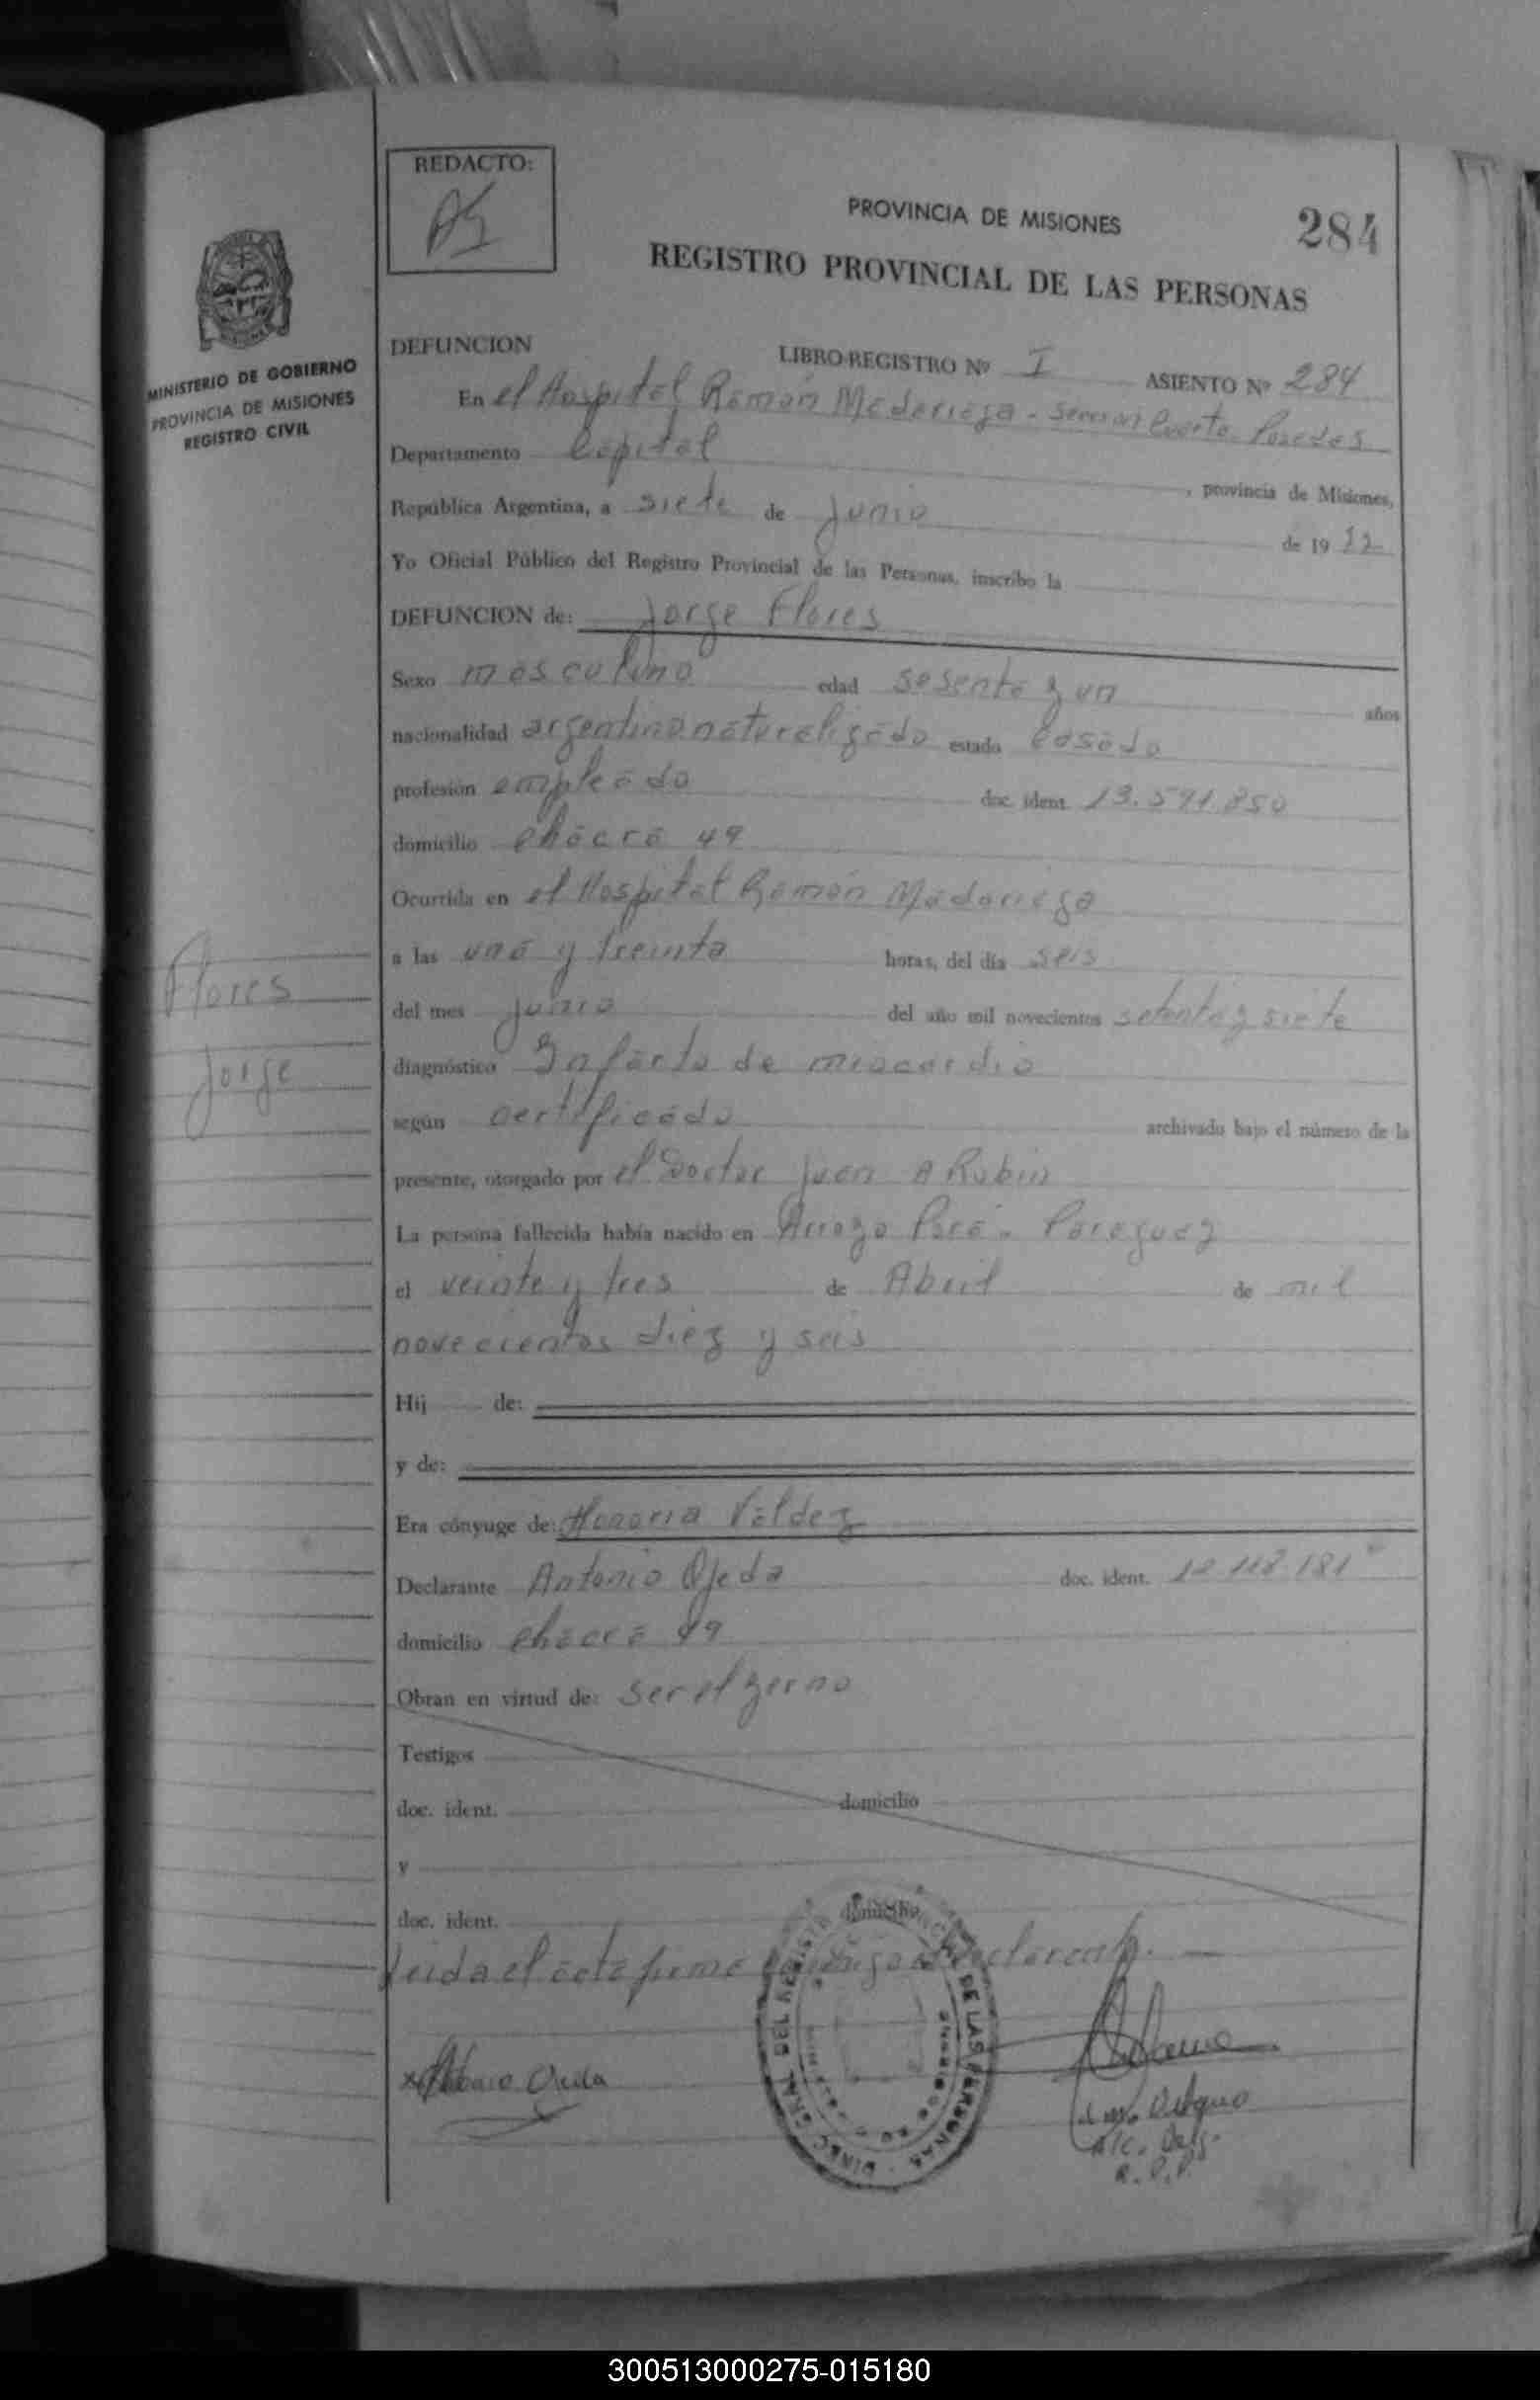 REDACTO:
PROVINCIA DE MISIONES
284
REGISTRO PROVINCIAL DE LAS PERSONAS
MINISTERIO DE GOBIERNO
PROVINCIA DE MISIONES
REGISTRO CIVIL
DEFUNCION LIBRO-REGISTRO Nº I ASIENTO Nº 284
En el Hospital Ramón Madariaga -
Departamento Capital , provincia de Misiones,
República Argentina, a siete de junio de 19 77
Yo Oficial Público del Registro Provincial de las Personas, inscribo la
DEFUNCION de: Jorge Flores
Sexo masculino edad sesenta y un años
nacionalidad argentino naturalizado estado Casado
profesión empleado doc. ident. 13.591.850
domicilio Chacra 49
Ocurrida en el Hospital Ramón Madariaga
a las una y treinta horas, del día seis
Flores
del mes junio del año mil novecientos setenta y siete
Jorge
diagnóstico Infarto de miocardio
según certificado archivado bajo el número de la
presente, otorgado por el Doctor Juan A Rubin
La persona fallecida había nacido en Arroyo Porá - Paraguay
el veinte y tres de Abril de mil
novecientos diez y seis
Hij de:
y de:
Era cónyuge de: Honoria Valdez
Declarante Antonio Ojeda doc. ident. 12.118.181
domicilio Chacra 49
Obran en virtud de: ser el yerno
Testigos
doc. ident. domicilio
y
doc. ident. domicilio
Leida el acta firma conmigo el declarante. —
DE LAS PERSONAS
R.P.P.
300513000275-015180